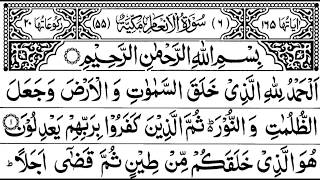 اٰیَاتُهَا ۱۶۵ (۶) سُوْرَةُ الْاَنْعَامِ مَكِّيَّةٌ (۵۵) رُكُوْعَاتُهَا ۲۰
بِسْمِ اللّٰهِ الرَّحْمٰنِ الرَّحِیْمِ
اَلْحَمْدُ لِلّٰهِ الَّذِیْ خَلَقَ السَّمٰوٰتِ وَ الْاَرْضَ وَ جَعَلَ
الظُّلُمٰتِ وَ النُّوْرَ ؕ ثُمَّ الَّذِیْنَ كَفَرُوْا بِرَبِّهِمْ یَعْدِلُوْنَ ۱
هُوَ الَّذِیْ خَلَقَكُمْ مِّنْ طِیْنٍ ثُمَّ قَضٰۤی اَجَلًا ؕ